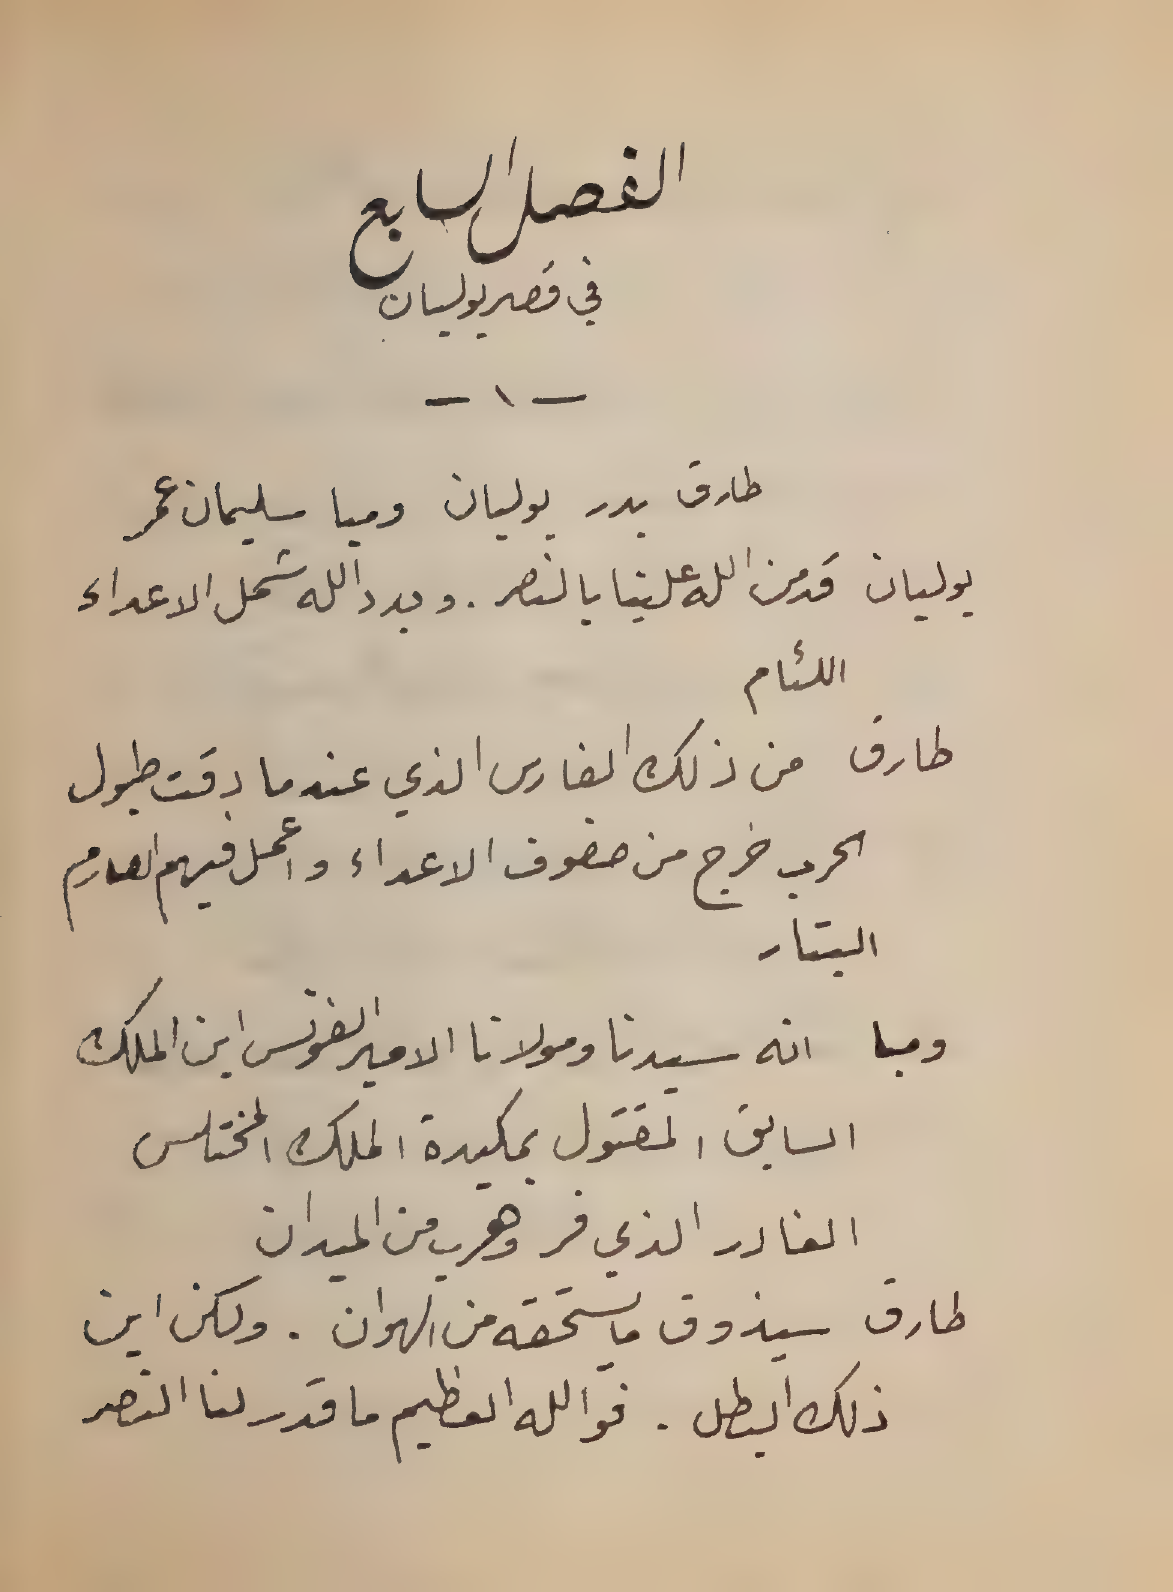 الفصل السابع
في قصر يوليان
— ١ —
طارق بدر يوليان ومبا سليمان عمر
يوليان قد من الله علينا بالنصر . وبدد الله شمل الاعداء
اللئام
طارق من ذلك الفارس الذي عندما دقت طبول
الحرب خرج من صفوف الاعداء واعمل فيهم الصارم
البتار
ومبا انه سيدنا ومولانا الامير الفونس ابن الملك
السابق المقتول بمكيدة الملك المختلس
الغادر الذي فر وهرب من الميدان
طارق سيذوق ما يستحقه من الهوان . ولكن اين
ذلك البطل . فوالله العظيم ما قدر لنا النصر